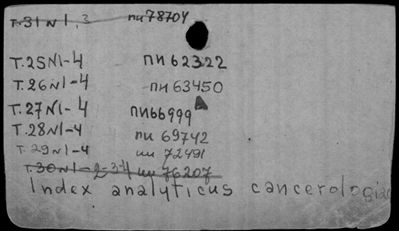 т.31 N1,3 пи78704
т.25N1-4 пи62322
т.26N1-4 пи63450
т.27N1-4 пи66999
т.28N1-4 пи 69742
т.29N1-4 пи 72491
т.30N1-2-3-4 пи 76207
Index analyticus cancerologiae